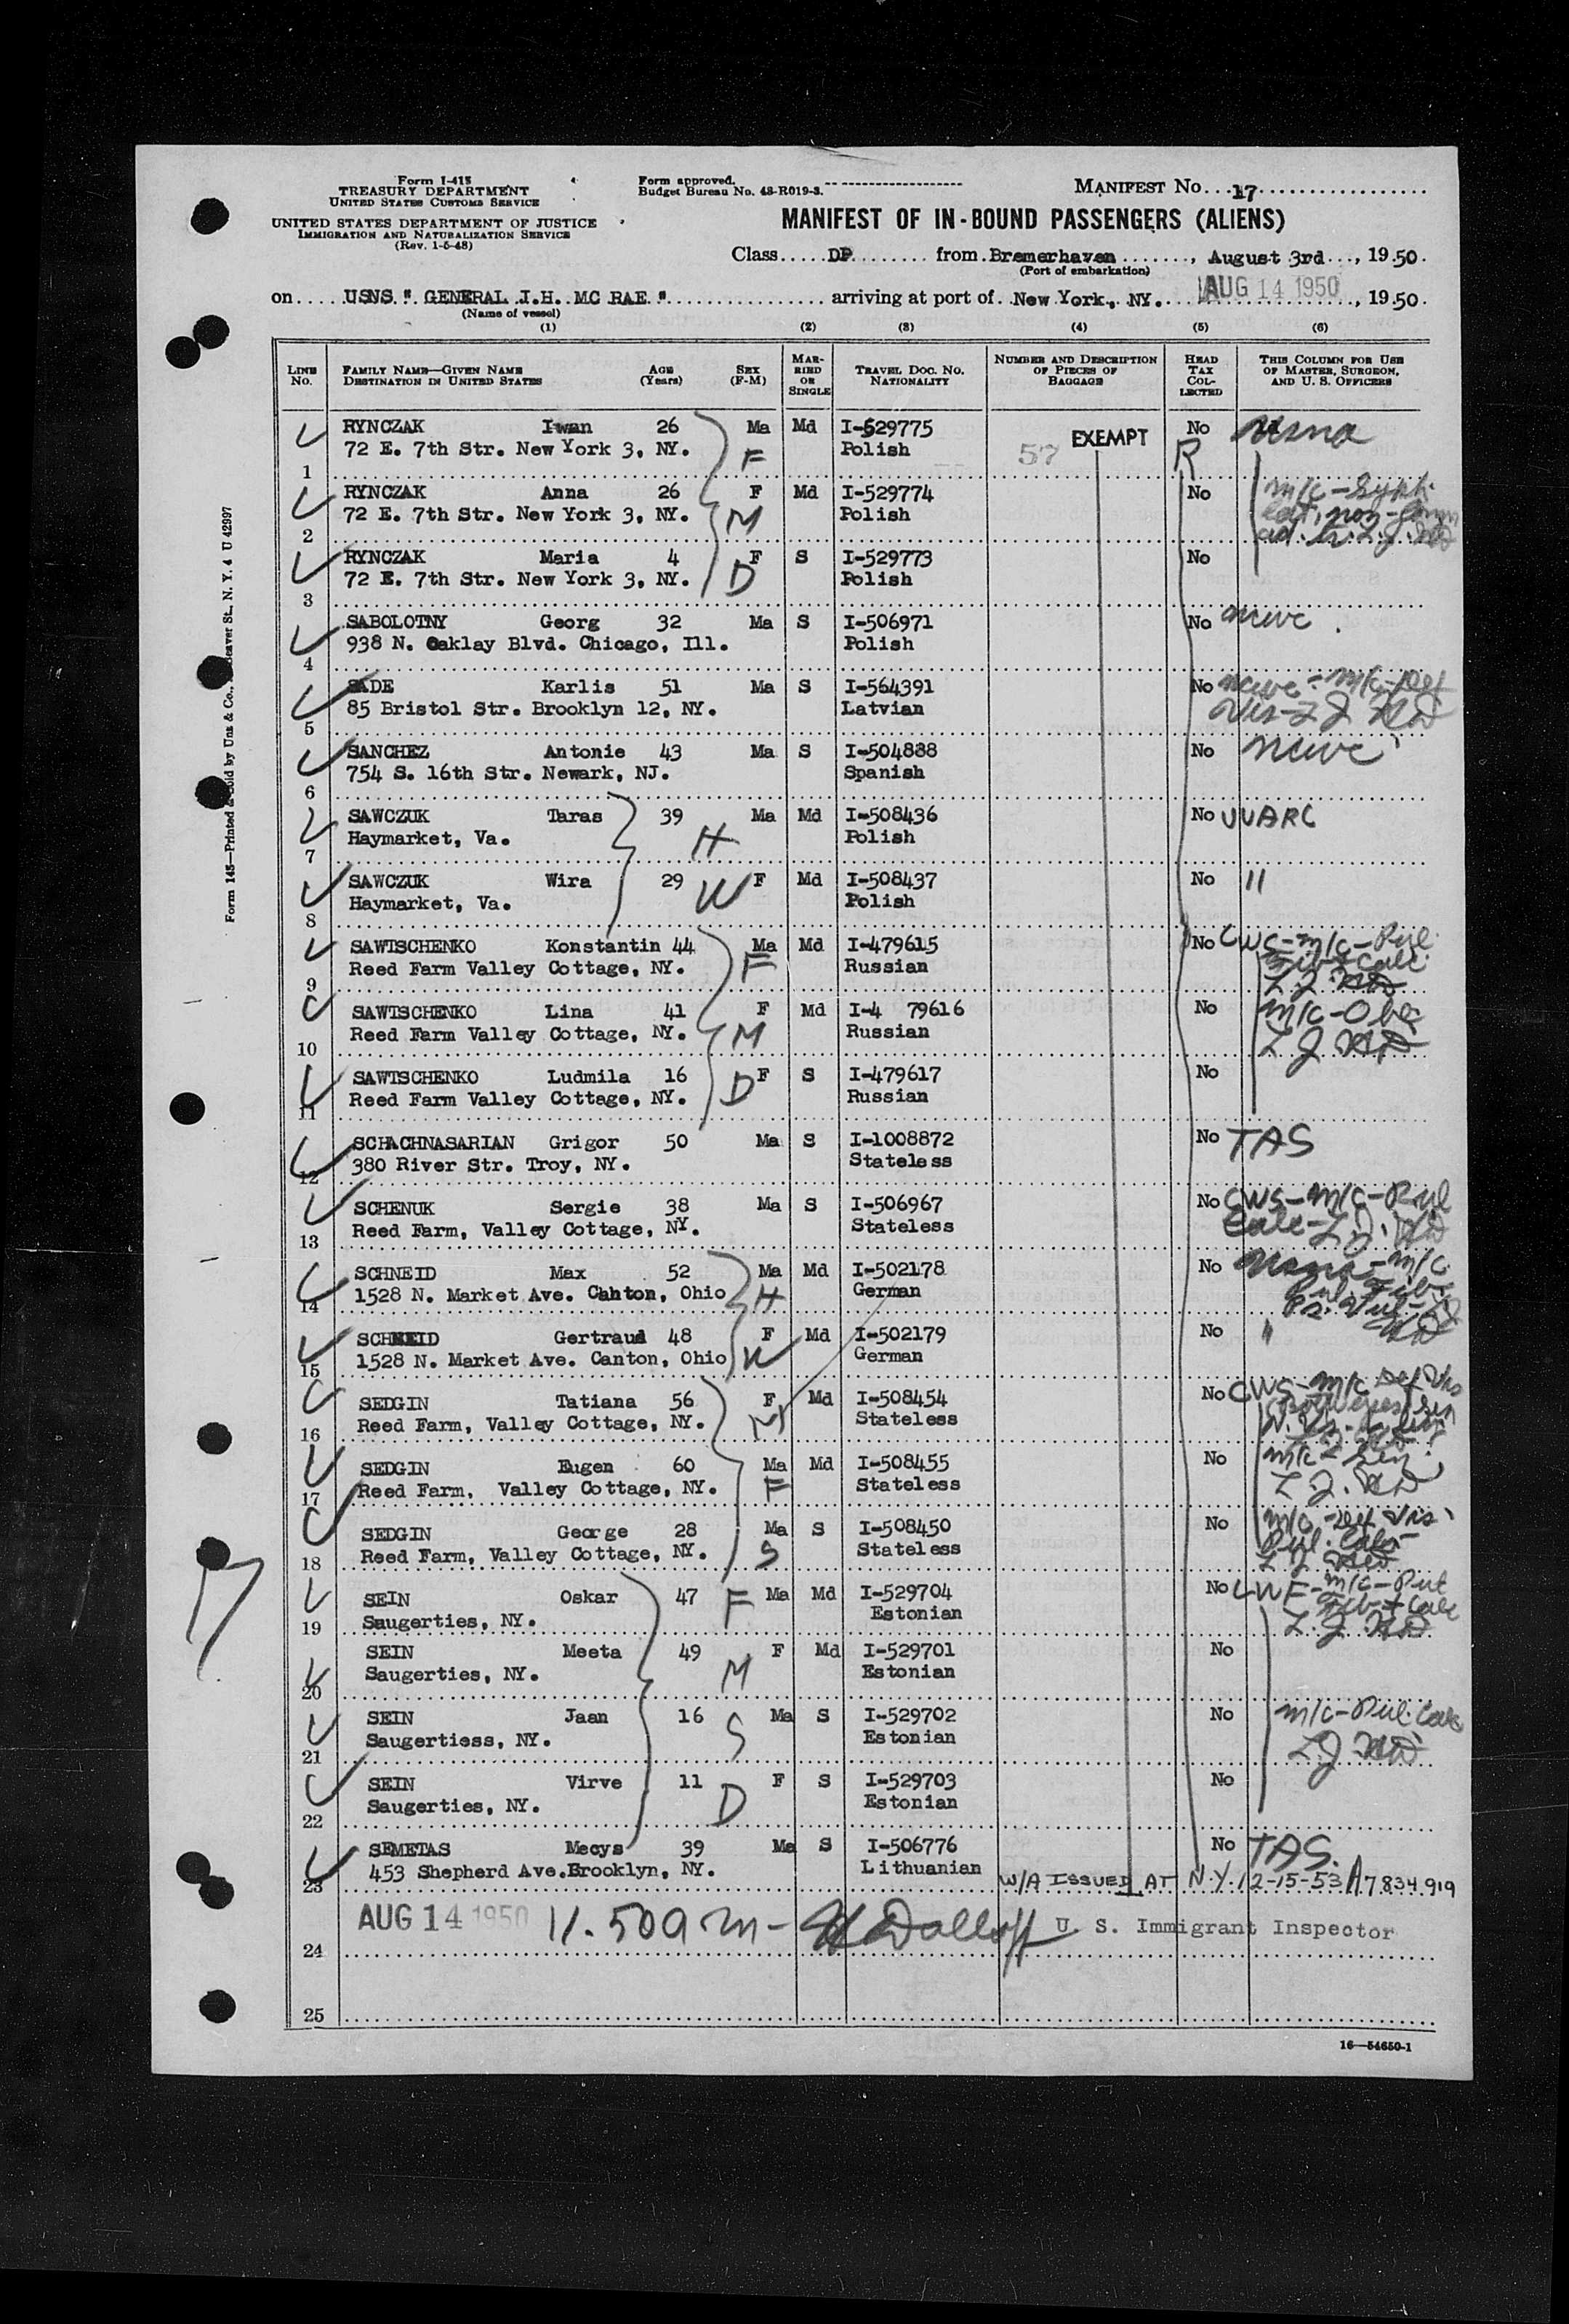 Form I-415
TREASURY DEPARTMENT
UNITED STATES CUSTOMS SERVICE
UNITED STATES DEPARTMENT OF JUSTICE
IMMIGRATION AND NATURALIZATION SERVICE
(Rev. 1-5-48)
Form approved.
Budget Bureau No. 43-R019-3.
MANIFEST No. 17
MANIFEST OF IN-BOUND PASSENGERS (ALIENS)
Class DP from Bremerhaven, August 3rd, 1950.
(Port of embarkation)
on USNS " GENERAL I.H. MC RAE " arriving at port of New York, NY. AUG 14 1950, 1950.
(Name of vessel)
(1) (2) (3) (4) (5) (6)
LINE No. FAMILY NAME—GIVEN NAME DESTINATION IN UNITED STATES AGE (Years) SEX (F-M) MARRIED OR SINGLE TRAVEL DOC. NO. NATIONALITY NUMBER AND DESCRIPTION OF PIECES OF BAGGAGE HEAD TAX COLLECTED THIS COLUMN FOR USE OF MASTER, SURGEON, AND U. S. OFFICERS
RYNCZAK Iwan 26 Ma Md I-529775 57 EXEMPT No
1 72 E. 7th Str. New York 3, NY. F Polish R
RYNCZAK Anna 26 F Md I-529774 No
2 72 E. 7th Str. New York 3, NY. M Polish
RYNCZAK Maria 4 F S I-529773 No
3 72 E. 7th Str. New York 3, NY. D Polish
SABOLOTNY Georg 32 Ma S I-506971 No ncwc
4 938 N. Oaklay Blvd. Chicago, Ill. Polish
SADE Karlis 51 Ma S I-564391 No ncwc - m/c - Def
5 85 Bristol Str. Brooklyn 12, NY. Latvian Vis
SANCHEZ Antonie 43 Ma S I-504888 No ncwc
6 754 S. 16th Str. Newark, NJ. Spanish
SAWCZUK Taras 39 Ma Md I-508436 No UUARC
7 Haymarket, Va. H Polish
SAWCZUK Wira 29 F Md I-508437 No "
8 Haymarket, Va. W Polish
SAWTSCHENKO Konstantin 44 Ma Md I-479615 No CWS - m/c - Pul.
9 Reed Farm Valley Cottage, NY. F Russian
SAWTSCHENKO Lina 41 F Md I-4 79616 No m/c
10 Reed Farm Valley Cottage, NY. M Russian
SAWTSCHENKO Ludmila 16 F S I-479617 No
11 Reed Farm Valley Cottage, NY. D Russian
SCHACHNASARIAN Grigor 50 Ma S I-1008872 No TAS
12 380 River Str. Troy, NY. Stateless
SCHENUK Sergie 38 Ma S I-506967 No CWS - m/c - Pul
13 Reed Farm, Valley Cottage, NY. Stateless Calc
SCHNEID Max 52 Ma Md I-502178 No m/c
14 1528 N. Market Ave. Cahton, Ohio H German
SCHNEID Gertraud 48 F Md I-502179 No "
15 1528 N. Market Ave. Canton, Ohio W German
SEDGIN Tatiana 56 F Md I-508454 No CWS - m/c Def Vis
16 Reed Farm, Valley Cottage, NY. M Stateless
SEDGIN Eugen 60 Ma Md I-508455 No m/c
17 Reed Farm, Valley Cottage, NY. F Stateless
SEDGIN George 28 Ma S I-508450 No m/c - Def Vis
18 Reed Farm, Valley Cottage, NY. S Stateless
SEIN Oskar 47 F Ma Md I-529704 No LWF - m/c - Pul
19 Saugerties, NY. Estonian
SEIN Meeta 49 F Md I-529701 No
20 Saugerties, NY. M Estonian
SEIN Jaan 16 Ma S I-529702 No m/c - Pul. Calc
21 Saugertiess, NY. S Estonian
SEIN Virve 11 F S I-529703 No
22 Saugerties, NY. D Estonian
SEMETAS Mecys 39 Ma S I-506776 No TAS.
23 453 Shepherd Ave.Brooklyn, NY. Lithuanian W/A ISSUED AT N.Y. 12-15-53 A7834919
24 AUG 14 1950 11.50 am - U. S. Immigrant Inspector
25
16—54650-1
17